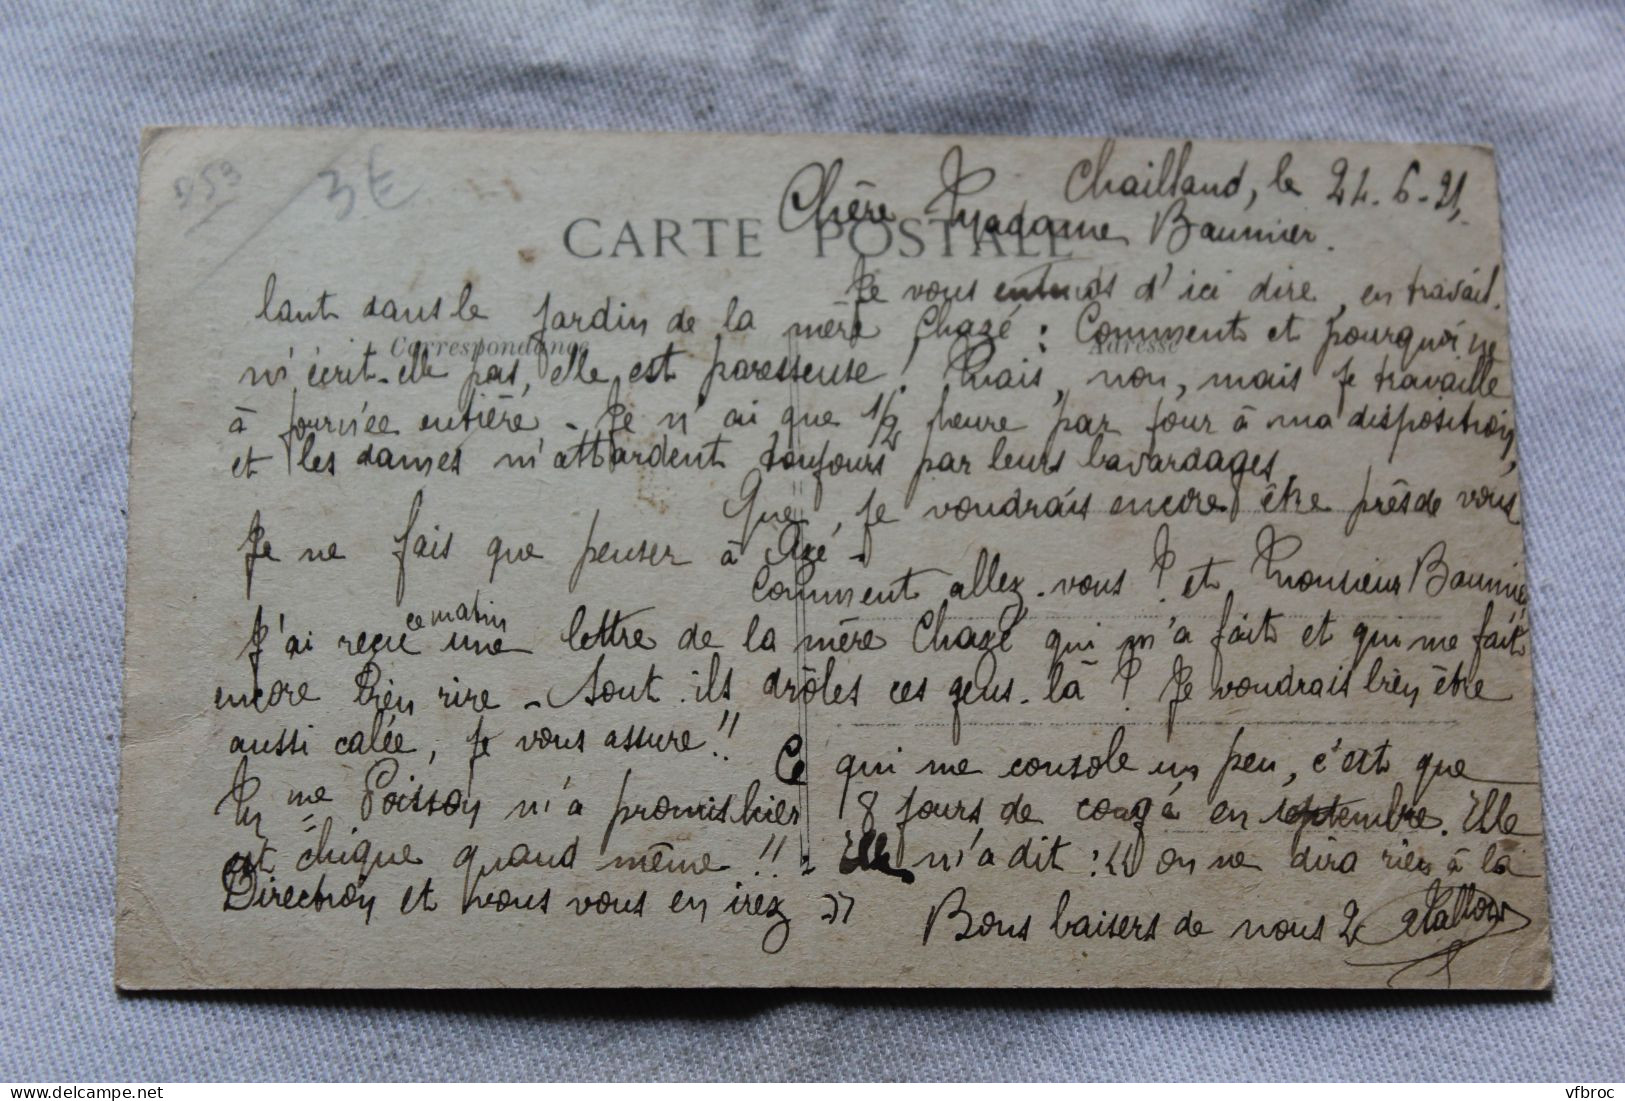 D53
3€
Chailland, le 24-6-21,
CARTE POSTALE
Chère Madame Baumier.
Je vous entends d'ici dire, en travail-
lant dans le jardin de la mère Chazé : Comment et pourquoi ne
Correspondance
Adresse
m'écrit-elle pas, elle est paresseuse ! Mais, non, mais je travaille
à journée entière - Je n'ai que 1/2 heure par jour à ma disposition,
et les dames m'attardent toujours par leurs bavardages
Que, je voudrais encore être près de vous
Je ne fais que penser à Azé -
Comment allez-vous ? et Monsieur Baumier
J'ai reçu ce matin une lettre de la mère Chazé qui m'a fait et qui me fait
encore bien rire - Sont-ils drôles ces gens-là ? Je voudrais bien être
aussi calée, je vous assure !!
Ce qui me console un peu, c'est que
Mme Poisson m'a promis hier 8 jours de congé en septembre. Elle
est chique quand même !! - Elle m'a dit : "on ne dira rien à la
Direction et vous vous en irez"
Bons baisers de nous 2
vfbroc